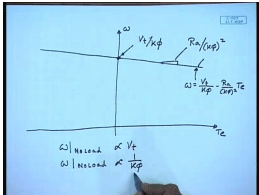 ω
Vt/Kφ
Ra/(Kφ)²
ω = Vt/Kφ - Ra/(Kφ)² Te
Te
ω|NO LOAD ∝ Vt
ω|NO LOAD ∝ 1/Kφ